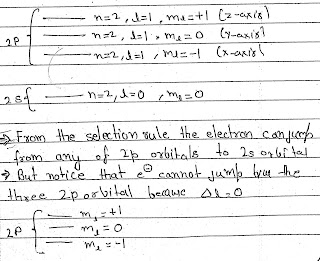 2P { —— n=2, l=1, ml=+1 (z-axis)
—— n=2, l=1, ml=0 (y-axis)
—— n=2, l=1, ml=-1 (x-axis)
2s { —— n=2, l=0, ml=0
⇒ From the selection rule the electron can jump
from any of 2p orbitals to 2s orbital
→ But notice that e⊖ cannot jump b/w the
three 2p orbital because Δl=0
2P { —— ml=+1
—— ml=0
—— ml=-1